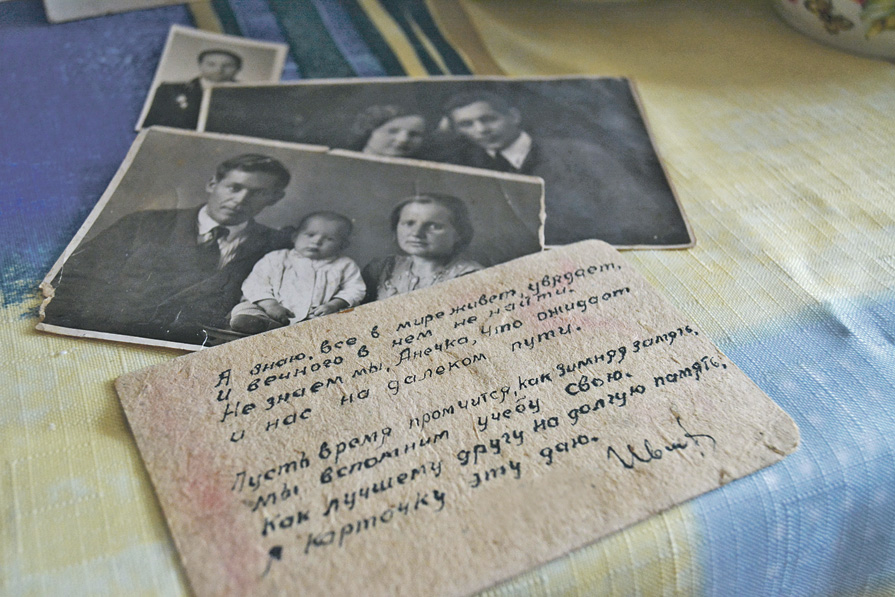 Я знаю, все в мире живет, увядает,
и вечного в нем не найти.
Не знаем мы, Анечка, что ожидает
и нас на далеком пути.
Пусть время промчится, как зимняя замять,
мы вспомним учебу свою.
Как лучшему другу на долгую память,
я карточку эту даю.